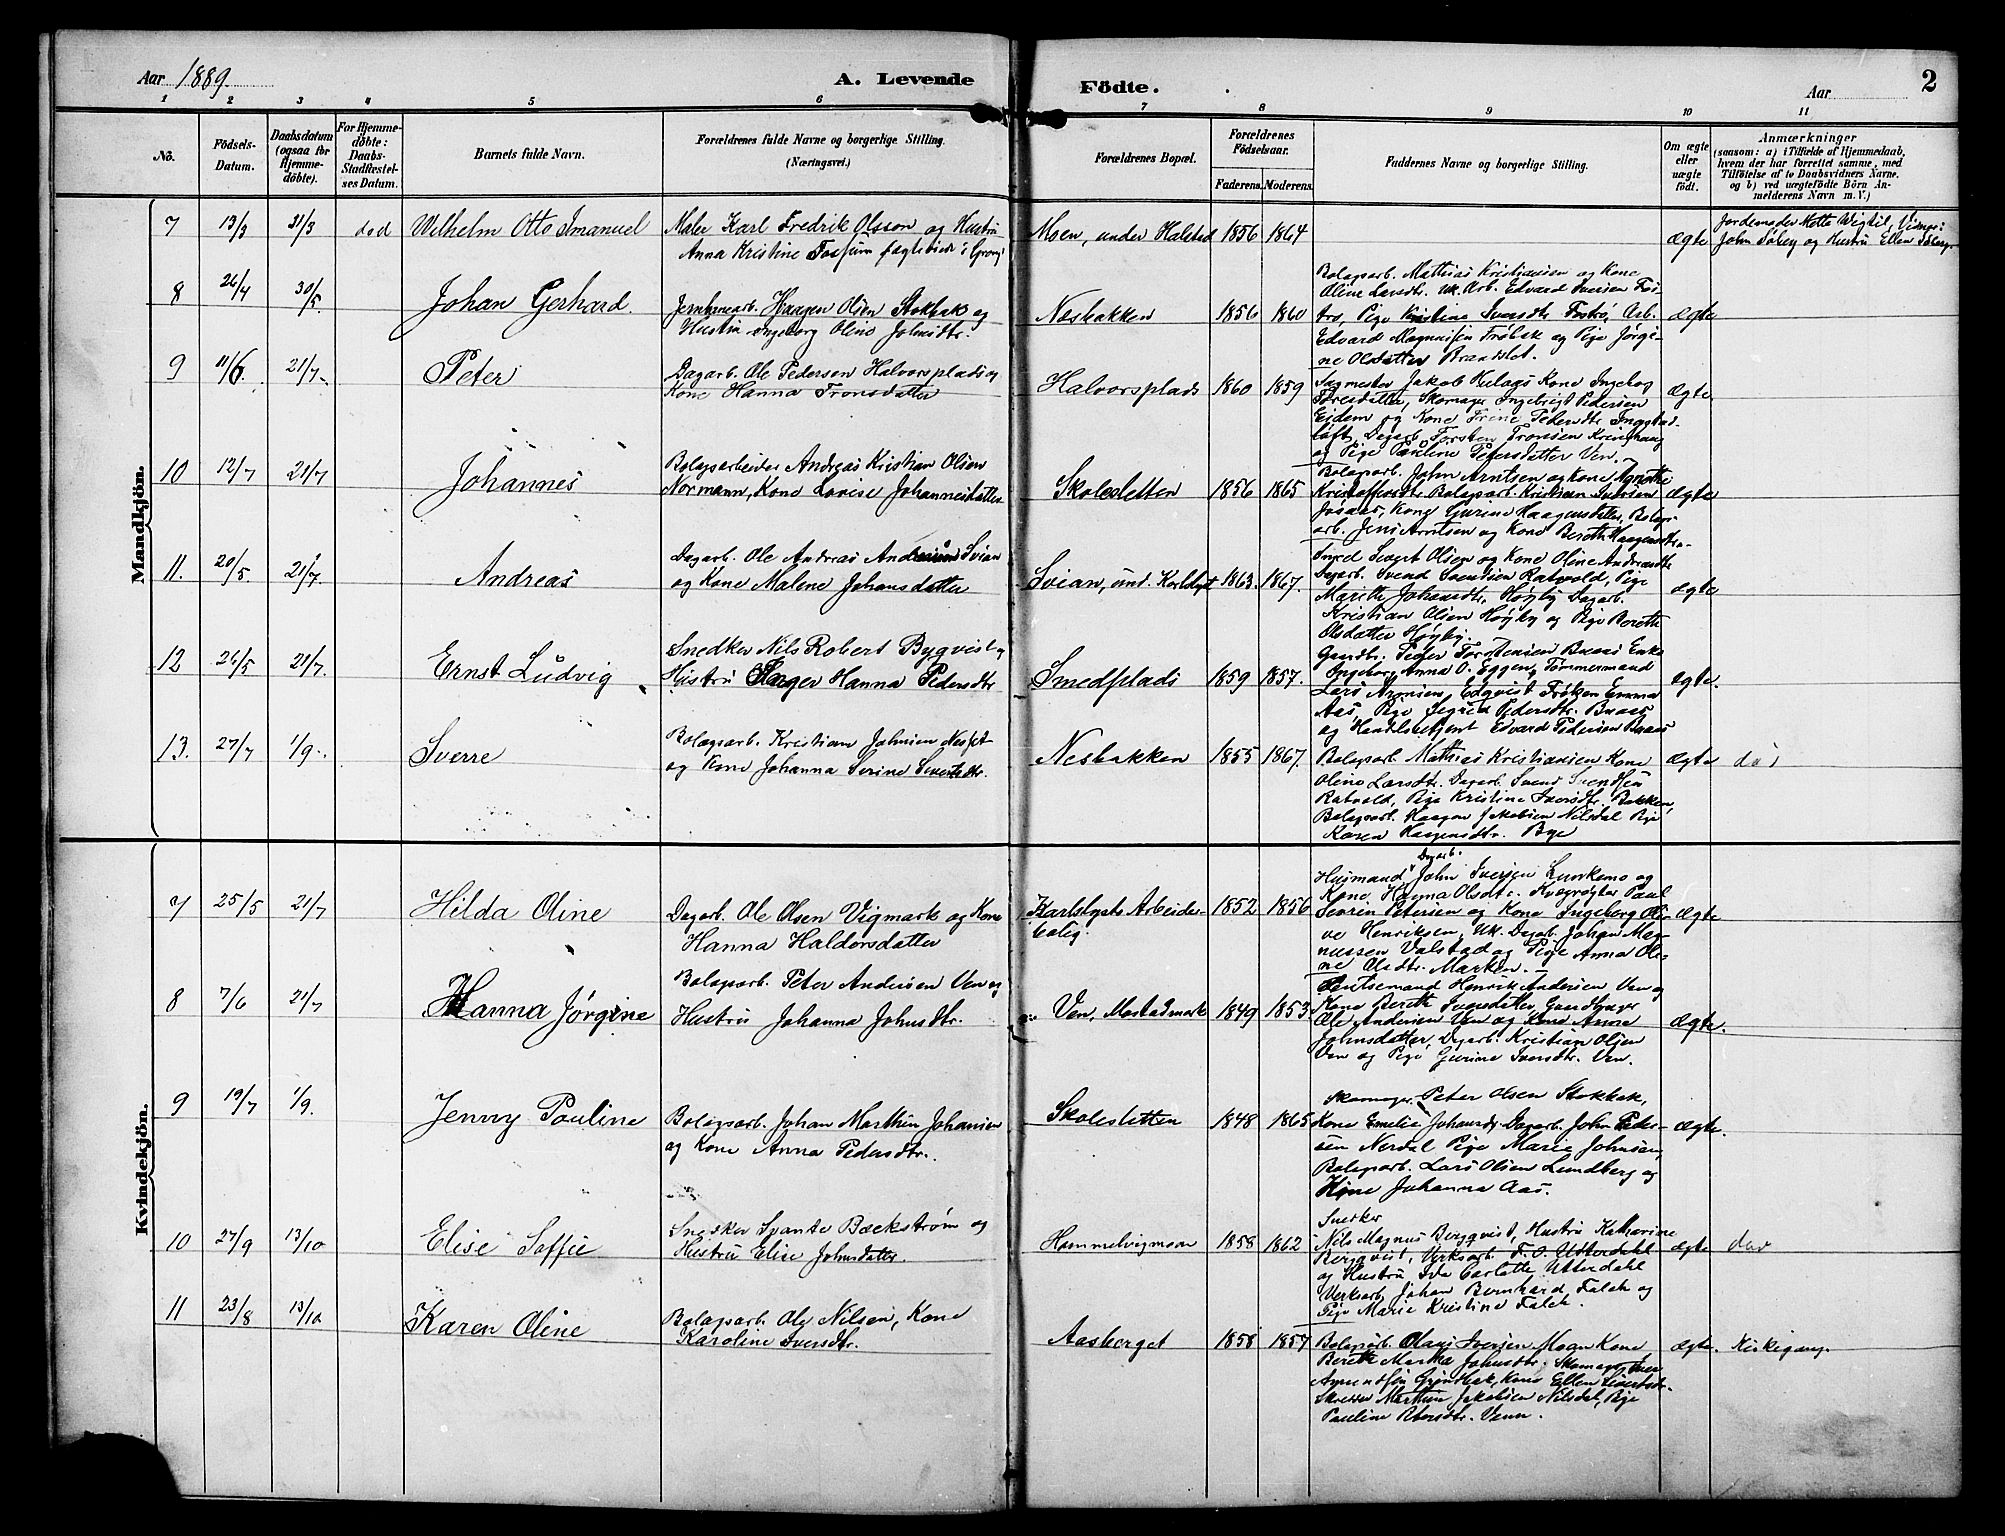 Aar 1889.
A. Levende Födte.
Aar
2
1 2 3 4 5 6 7 8 9 10 11
No.
Födsels-Datum.
Daabsdatum (ogsaa for Hjemme-döbte).
For Hjemme-döbte: Daabs-Stadfæstel-ses Datum.
Barnets fulde Navn.
Forældrenes fulde Navne og borgerlige Stilling. (Næringsvei.)
Forældrenes Bopæl.
Forældrenes Födselsaar.
Faderens. Moderens.
Faddernes Navne og borgerlige Stilling.
Om ægte eller uægte födt.
Anmærkninger
(saasom: a) i Tilfælde af Hjemmedaab, hvem der har forrettet samme, med Tilföielse af to Daabsvidners Navne. og b) ved uægtefödte Börn An-melderens Navn m. V.)
Mandkjön.
7 13/3 21/3 død Wilhelm Otto Imanuel
Maler Karl Fredrik Olsson og Hustru
Anna Kristine Fossum fægteviede i Grong
Moen, under Halstad 1856 1864
ægte
Jordemoder Mette Wigtil, Vidner:
John Soberg og Hustru Ellen Soberg.
8 26/4 30/5 Johan Gerhard
Jernbanearb. Haagen Olsen Stokbak og
Hustru Ingeborg Oline Johnsdtr.
Nesbakken 1856 1860
Bolagsarb. Mathias Kristiansen og Kone
Oline Larsdtr. Uk. Arb. Edvard Iversen Fos-
tro, Pige Kristine Iversdtr Fostro, Arb.
Edvard Magnussen Frøbak og Pige Jørgi-
ne Olsdatter Brandslet.
ægte
9 11/6. 21/7. Peter
Dagarb. Ole Pedersen Halvorsplads og
Kone Hanna Tronsdatter
Halvorsplads 1860 1859
Sagmester Jakob Kulaas Kone Ingebog
Toresdatter, Skomager Ingebrigt Pedersen
Eidem og Kone Trine Pedersdtr Ingstad-
løft, Dagarb. Torsten Tronsen Kringhaug
og Pige Pauline Petersdatter Ven.
ægte.
10 12/7 21/7 Johannes
Bolagsarbeider Andreas Kristian Olsen
Normann, Kone Lovise Johannesdatter
Skolesletten 1856 1865
Bolagsarb. John Arntsen og Kone Agnethe
Kristoffersdtr Bolagsarb. Kristian Iversen
Josaas, Kone Gurine Haagensdatter, Bolags-
arb. Jens Arntsen og Kone Bereth Haagensdtr.
ægte
11. 20/5 21/7 Andreas
Dagarb. Ole Andreas Andersen Svian
og Kone Malene Johansdatter
Svian, und. Karlslyst 1863. 1867.
Smed Sivert Olsen og Kone Oline Andreasdtr
Dagarb. Svend Svendsen Ratvold, Pige
Marethe Johansdtr, Høiby Dagarb.
Kristian Olsen Høyby og Pige Bereth
Olsdatter Høyby.
ægte
12 26/5 21/7 Ernst Ludvig
Snedker Nils Robert Bygvist og
Hustru Inger Hanna Pedersdtr
Smedplads 1859 1857.
Gaardbr. Peder Torstensen Buaas Enke
Ingeborg Anna O. Eggen, Tømmermand
Lars Aronsen Edqvist Frøken Emma
Aas, Pige Sigrid Pedersdtr. Buaas
og Handelsbetjent Edvard Pedersen Buaas
ægte.
13. 27/7 1/9. Sverre
Bolagsarb. Kristian Johnsen Nesset
og Kone Johanna Serine Sivertsdtr.
Nesbakken 1855 1867.
Bolagsarb. Mathias Kristiansen Kone
Oline Larsdtr. Dagarb. Svend Svendsen
Ratvold, Pige Kristine Iversdtr. Bakken,
Bolagsarb. Haagen Jakobsen Nilsdal Pige
Karen Haagensdtr. Bye
ægte
Kvindekjön.
7 25/5 21/7 Hilda Oline
Dagarb. Ole Olsen Vigmark og Kone
Hanna Haldorsdatter
Karlslysts Arbeider-
bolig. 1852 1856
Dagarb.
Husmand John Iversen Lunkemo og
Kone Hanna Olsdtr. Kvægrøgter Paul
Severin Petersen og Kone Ingeborg Oli-
ve Henriksen, Uk. Dagarb. Johan Mag-
nussen Valstad og Pige Anna Oli-
ne Olsdtr. Marken.
ægte
8 7/6 21/7 Hanna Jørgine
Bolagsarb. Peter Andersen Ven og
Hustru Johanna Johnsdtr.
Ven, Mostadmark 1849 1853
Lentsemand Henrik Andersen Ven og
Kone Bereth Iversdatter, Gaardbruger
Ole Andersen Ven og Kone Anne
Johnsdatter, Dagarb. Kristian Olsen
Ven og Pige Gurine Iversdtr. Ven.
ægte.
9 19/7 1/9. Jenny Pauline
Bolagsarb. Johan Marthin Johansen
og Kone Anna Pedersdtr.
Skolesletten 1848 1865
Skomager Peter Olsen Stokbak,
Kone Emelie Johansdtr Dagarb. John Peter-
sen Nerdal Pige Marie Johnsen,
Bolagsarb. Lars Olsen Lundberg og
Kone Johanna Aas.
ægte.
10 27/9 13/10 Elise Soffie
Snedker Svante Backstrøm og
Hustru Elise Johnsdatter.
Hommelvigmoen 1858 1862
Snedker
Nils Magnus Bergqvist, Hustru Katharine
Bergqvist, Verksarb. F. O. Utterdahl
og Hustru Ida Carlotte Utterdahl
Verksarb. Johan Bernhard Falck og
Pige Marie Kristine Falck.
ægte
11 23/8 13/10 Karen Oline
Bolagsarb. Ole Nilsen, Kone
Karoline Iversdtr.
Aasberget 1858 1857
Bolagsarb. Olaus Iversen Moan Kone
Bereth Martha Johnsdtr. Skomager Iver
Amundsen Grønbek, Kone Ellen Sivertsdtr.
Skrædder Marthin Jakobsen Nilsdal, Pige
Pauline Petersdtr. Venn.
ægte. Kirkegang.